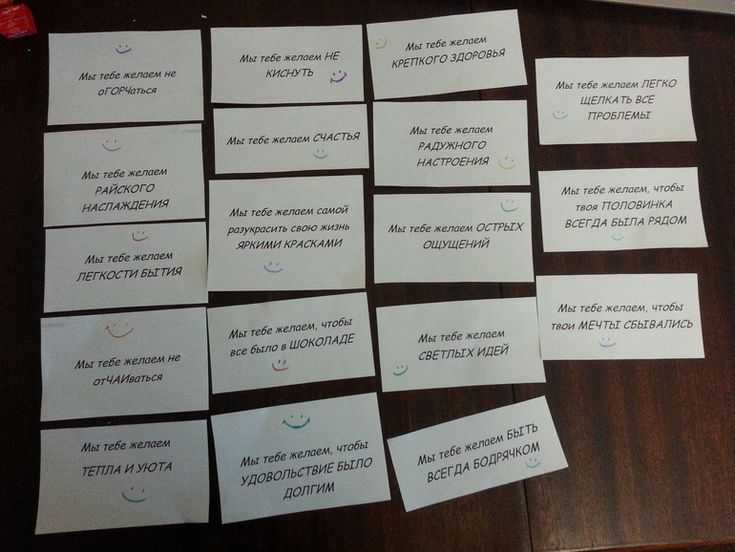 Мы тебе желаем не
оГОРЧаться
Мы тебе желаем
РАЙСКОГО
НАСЛАЖДЕНИЯ
Мы тебе желаем
ЛЕГКОСТИ БЫТИЯ
Мы тебе желаем не
отЧАИваться
Мы тебе желаем
ТЕПЛА И УЮТА
Мы тебе желаем НЕ
КИСНУТЬ
Мы тебе желаем СЧАСТЬЯ
Мы тебе желаем самой
разукрасить свою жизнь
ЯРКИМИ КРАСКАМИ
Мы тебе желаем, чтобы
все было в ШОКОЛАДЕ
Мы тебе желаем, чтобы
УДОВОЛЬСТВИЕ БЫЛО
ДОЛГИМ
Мы тебе желаем
КРЕПКОГО ЗДОРОВЬЯ
Мы тебе желаем
РАДУЖНОГО
НАСТРОЕНИЯ
Мы тебе желаем ОСТРЫХ
ОЩУЩЕНИЙ
Мы тебе желаем
СВЕТЛЫХ ИДЕЙ
Мы тебе желаем БЫТЬ
ВСЕГДА БОДРЯЧКОМ
Мы тебе желаем ЛЕГКО
ЩЕЛКАТЬ ВСЕ
ПРОБЛЕМЫ
Мы тебе желаем, чтобы
твоя ПОЛОВИНКА
ВСЕГДА БЫЛА РЯДОМ
Мы тебе желаем, чтобы
твои МЕЧТЫ СБЫВАЛИСЬ